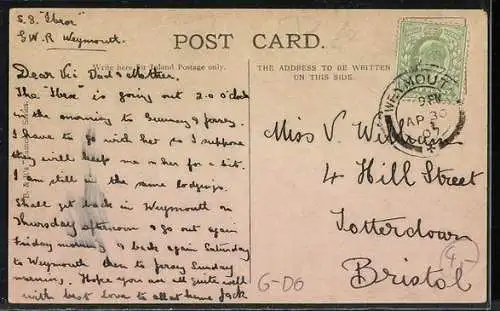 S.S. "Ibex"
G W R Weymouth.
POST CARD.
Write here for Inland Postage only.
THE ADDRESS TO BE WRITTEN
ON THIS SIDE.
Dear Vi Dad & Mother.
The "Ibex" is going out 2.0 o'clock
in the morning to Guernsey & Jersey.
I have to go with her so I suppose
they will keep me on her for a bit.
I am still in the same lodgings.
Shall get back in Weymouth on
Thursday afternoon & go out again
Friday morning & back again Saturday
to Weymouth then to Jersey Sunday
morning. Hope you are all quite well
with best love to all at home Jack
WEYMOUTH
AP 30
07
Miss V.
4 Hill Street
Totterdown
Bristol
G-D6
4,-